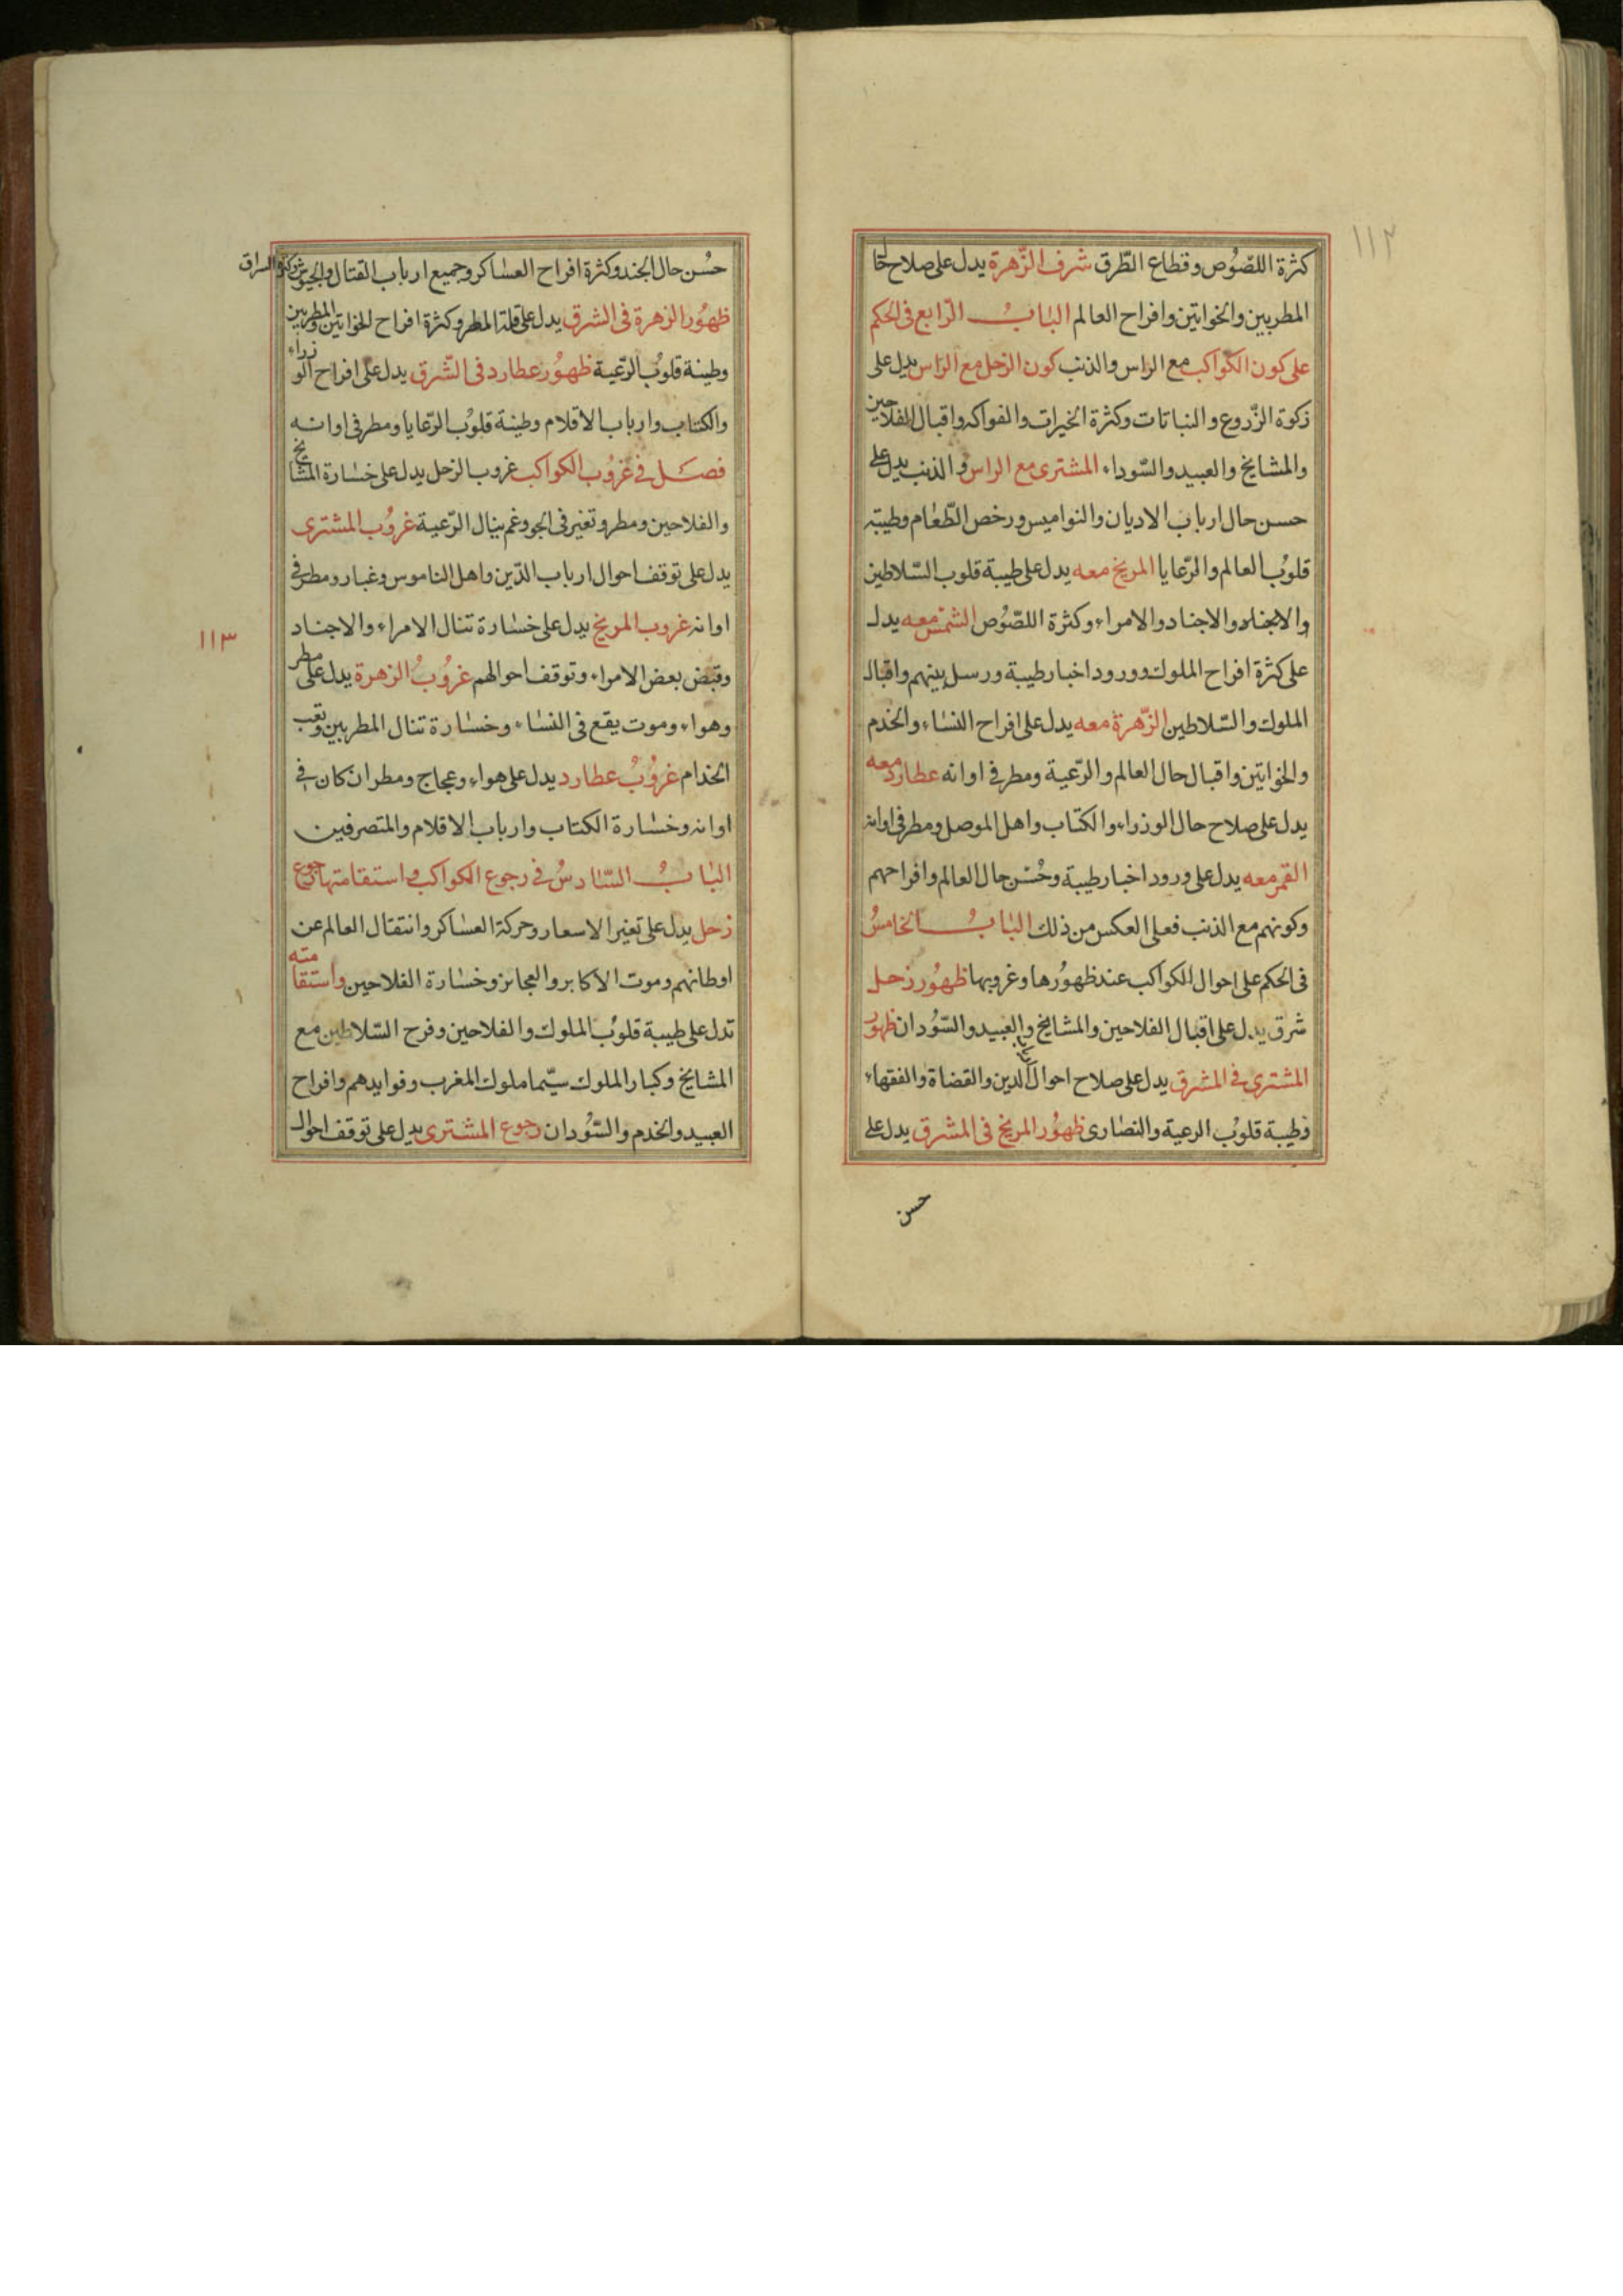 ١١٢
كثرة اللصُوص وقطاع الطّرق شرف الزّهرة يدل على صلاح حا
المطربين والخواتين وافراح العالم البابُ الرّابع فى الحكم
على كون الكواكب مع الراس والذنب كون الزحل مع الراس يدل على
ذكوة الزّروع والنباتات وكثرة الخيرات والفواكه واقبال الفلاحين
والمشايخ والعبيد والسّوداء المشترى مع الراس والذنب يدل على
حسن حال ارباب الاديان والنواميس ورخص الطّعام وطيبة
قلوُب العالم والرّعايا المريخ معه يدل على طيبة قلوب السّلاطين
والاجناد والاجناد والامراء وكثرة اللصّوُص الشمس معه يدل
على كثرة افراح الملوك وورود اخبار طيبة ورسل بينهم واقبال
الملوك والسّلاطين الزّهرة معه يدل على افراح النساء والخدم
والخواتين واقبال حال العالم والرّعية ومطر فى اوانه عطارد معه
يدل على صلاح حال الوزراء والكتاب واهل الموصل ومطر فى اوانه
القمر معه يدل على ورود اخبار طيبة وحُسْن حال العالم وافراحهم
وكونهم مع الذنب فعلى العكس من ذلك البابُ الخامسُ
فى الحكم على احوال الكواكب عند ظهوُرها وغروبها ظهوُر زحل
شرق يدل على اقبال الفلاحين والمشايخ والعبيد والسّوُدان ظهوُر
المشترى فى المشرق يدل على صلاح احوال الدين والقضاة والفقهاء
وطيبة قلوُب الرعية والنصارى ظهوُر المريخ فى المشرق يدل على
حسن
حُسْن حال الجند وكثرة افراح العساكر وجميع ارباب القتال والجيوش وكثرة السراق
ظهوُر الزهرة فى الشرق يدل على قلة المطر وكثرة افراح الخواتين والمطربين
وطيبة قلوُب الرّعية ظهوُر عطارد فى الشّرق يدل على افراح الوزراء
والكتاب وارباب الاقلام وطيبة قلوُب الرّعايا ومطر فى اوانه
فصل فى غروُب الكواكب غروب الزحل يدل على خسارة المشايخ
والفلاحين ومطر وتغير فى الجو وغم ينال الرّعية غروُب المشترى
يدل على توقف احوال ارباب الدّين واهل الناموس وغبار ومطر فى
اوانه غروب المريخ يدل على خسارة تنال الامراء والاجناد
١١٣
وقبض بعض الامراء وتوقف احوالهم غروُبُ الزهرة يدل على مطر
وهواء وموت يقع فى النساء وخسارة تنال المطربين وتعب
الخدام غروُبُ عطارد يدل على هواء وعجاج ومطر ان كان فى
اوانه وخسارة الكتاب وارباب الاقلام والمتصرفين
البابُ السّادسُ فى رجوع الكواكب واستقامتها رجوع
زحل يدل على تغير الاسعار وحركة العساكر وانتقال العالم عن
اوطانهم وموت الاكابر والعجائز وخسارة الفلاحين واستقامته
تدل على طيبة قلوُب الملوك والفلاحين وفرح السّلاطين مع
المشايخ وكبار الملوك سيّما ملوك المغرب وفوايدهم وافراح
العبيد والخدم والسّوُدان رجوع المشترى يدل على توقف احوال